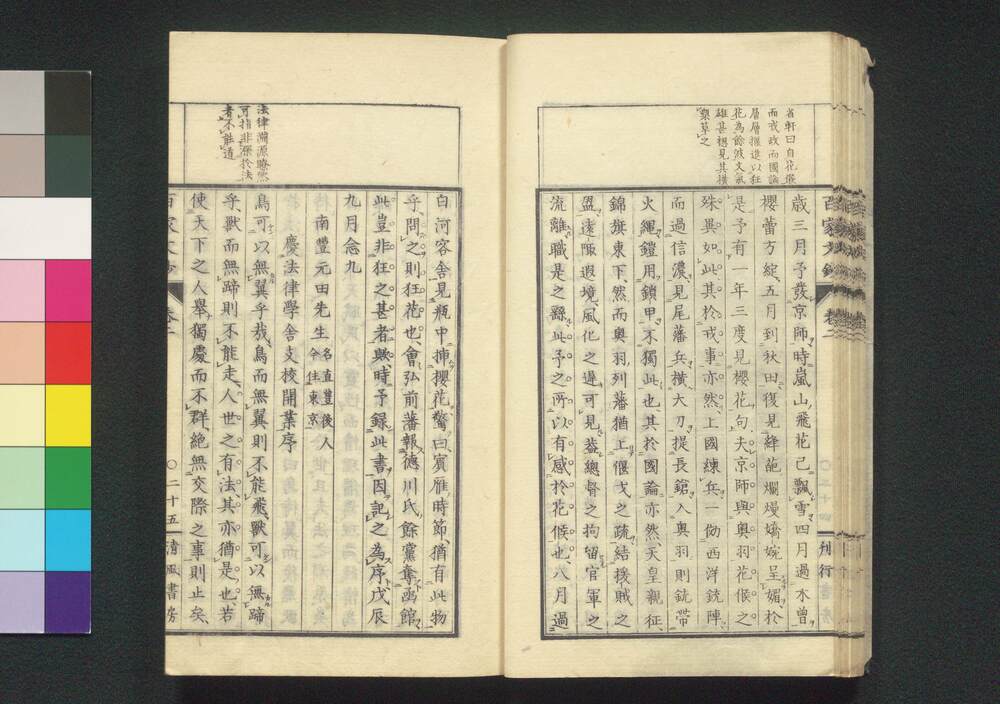 省軒曰自花候
而戎政而國論
層層擢進以狂
花為餘波文氣
雄甚想見其橫
槊草之
歲三月予發京師時嵐山飛花已飄雪四月過木曾
櫻蕾方綻五月到秋田復見絳葩爛熳嬌婉呈媚於
是予有一年三度見櫻花句夫京師與奧羽花候之
殊異如此其於戎事亦然上國練兵一倣西洋銃陣
而過信濃見尾藩兵橫大刀提長鎗入奧羽則銃帶
火繩鎧用鎖甲不獨此也其於國論亦然天皇親征
錦旗東下然而奧羽列藩猶主偃戈之疏結援賊之
盟遠陬遐境風化之遲可見蓋總督之拘留官軍之
流離職是之繇此予之所以有感於花候也八月過
百家文鈔
卷二
刊行
白河客舍見瓶中挿櫻花驚曰賓雁時節猶有此物
乎問之則狂花也會弘前藩報德川氏餘黨奪函館
此豈非狂之甚者與時予錄此書因記之為序戊辰
九月念九
南豐元田先生 名直豐後人 今住東京
慶法律學舍支校開業序
鳥可以無翼乎哉鳥而無翼則不能飛獸可以無蹄
乎獸而無蹄則不能走人世之有法其亦猶是也若
使天下之人舉獨處而不群絕無交際之事則止矣
法律淵源瞭然
可指非深於法
者不能道
百家文鈔
卷二
〇二十五
清風書房